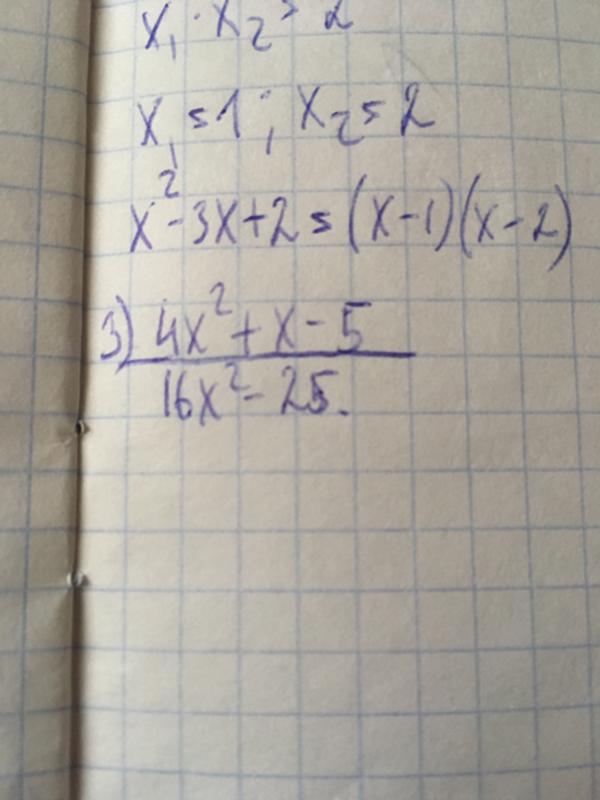 x₁ · x₂ = 2
x₁ = 1 ; x₂ = 2
x² - 3x + 2 = (x - 1)(x - 2)
3) 4x² + x - 5
16x² - 25.